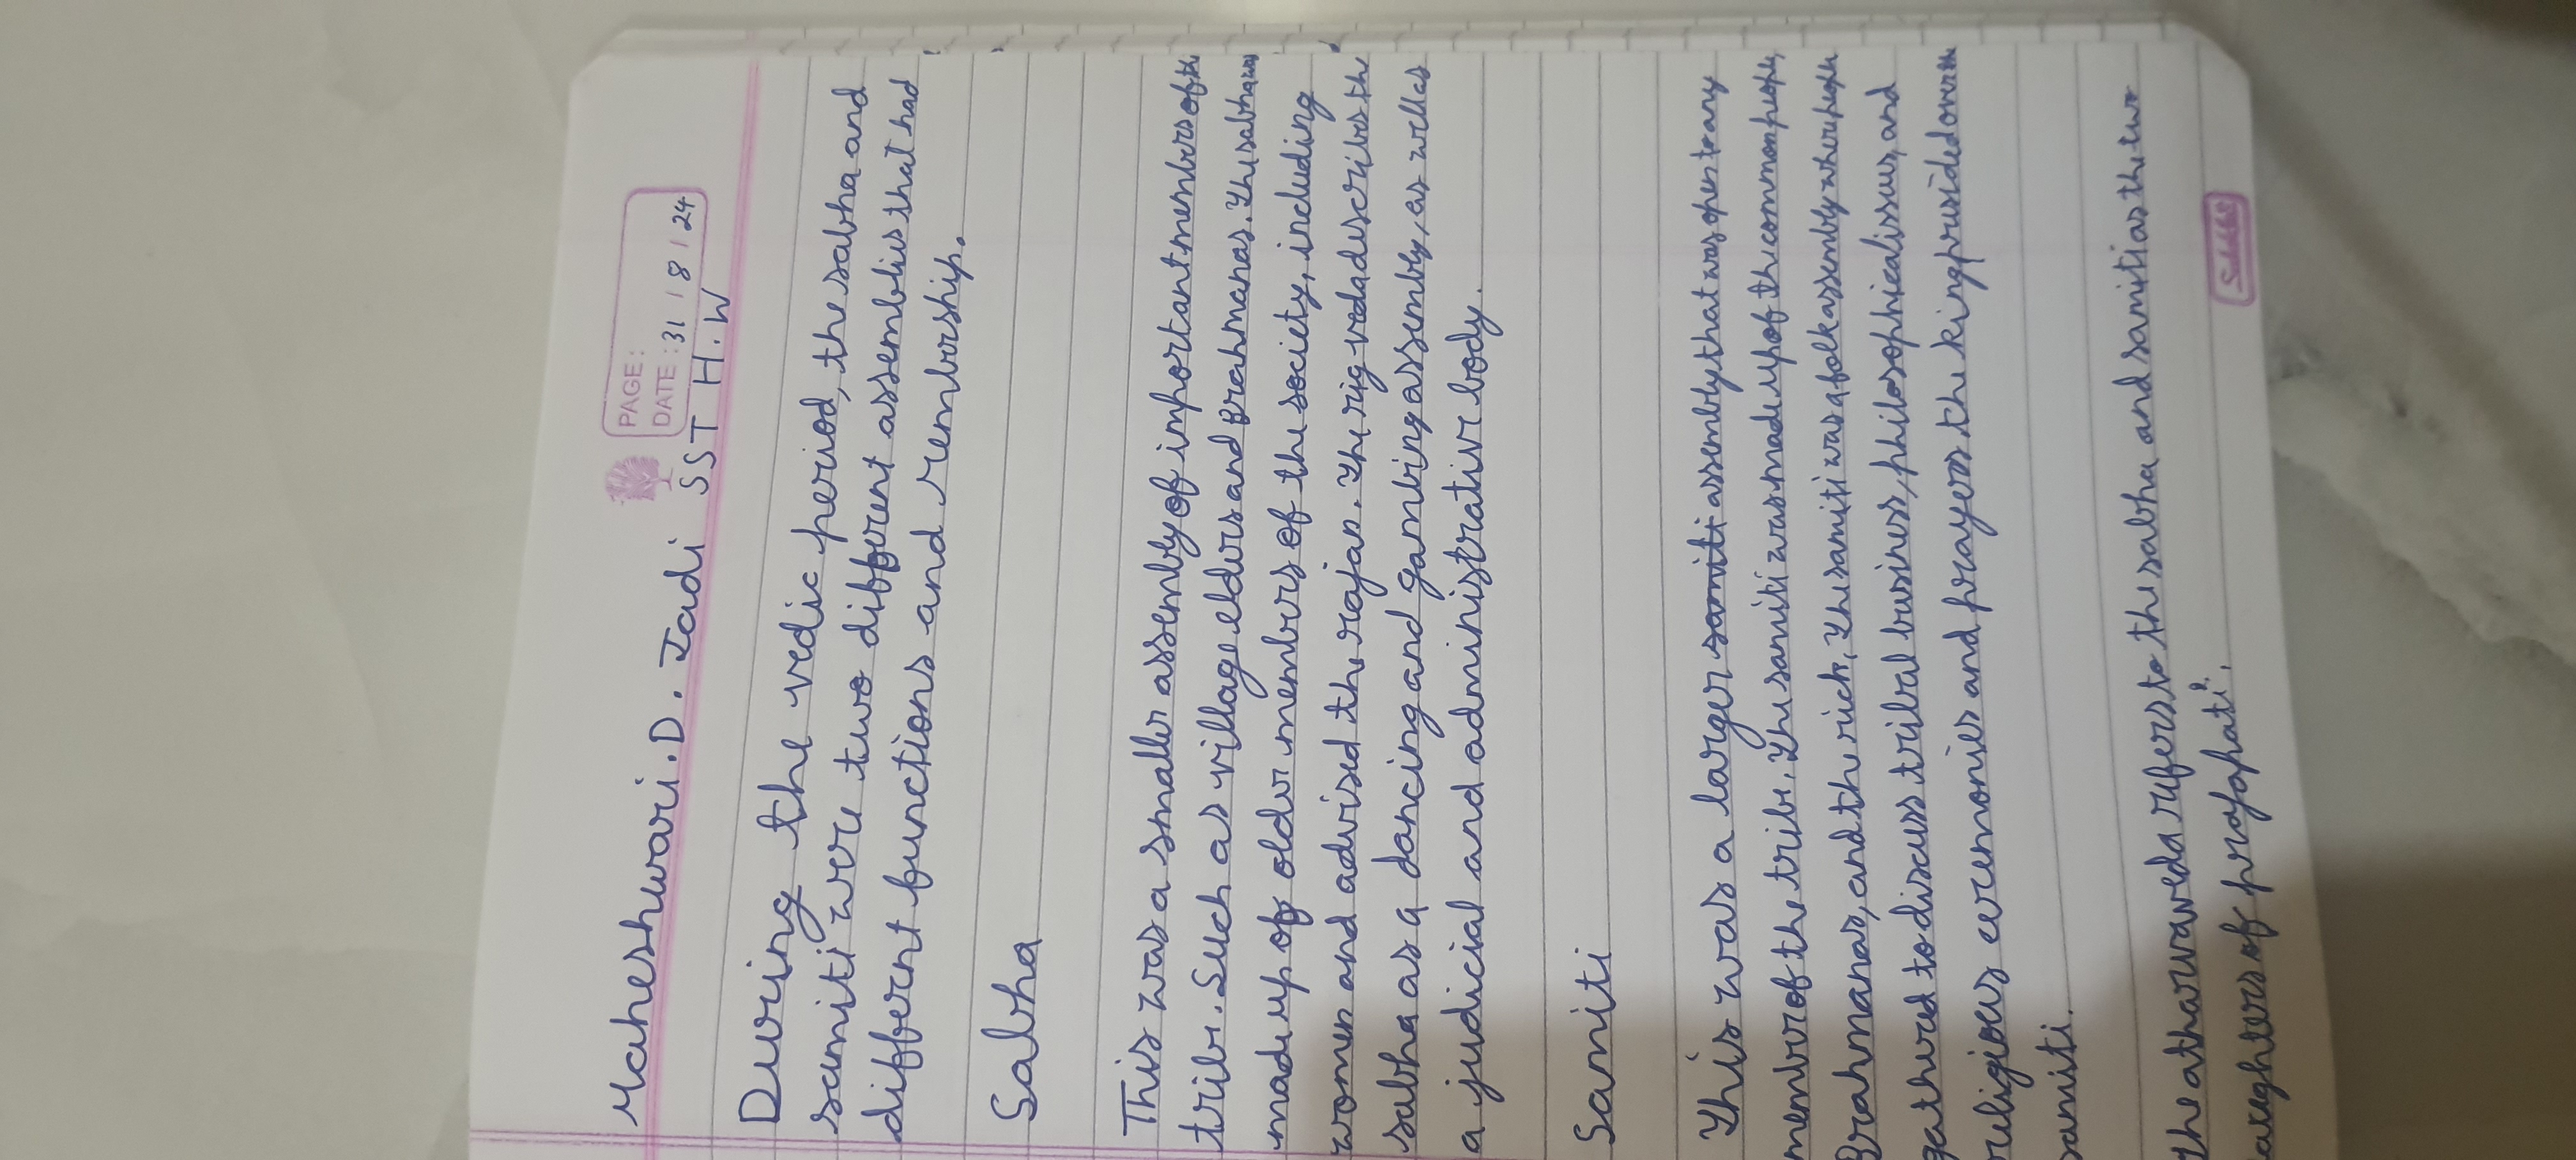 PAGE:
DATE: 31 / 8 / 24
Maheshwari. D. Zadi SST H.W
During the vedic period, the sabha and
samiti were two different assemblies that had
different functions and rembership.
Sabha
This was a smaller assembly of important members of th
tribe. Such as village elders and Brahmanas. The sabha was
made up of older members of the society, including
women and advised the rajan. The rig veda describes th
sabha as a dancing and gambing assembly, as well as
a judicial and administrative body.
Samiti
This was a larger samiti assembly that was open to any
member of the tribe. The samiti was made up of the common people,
Brahmanas, and the rich. The samiti was a folk assembly where people
gathered to discuss tribal business, philosophical issues, and
religious ceremonies and prayers the king presided over the
samiti.
The atharwaveda refers to the sabha and samiti as the two
aughters of prajapati.